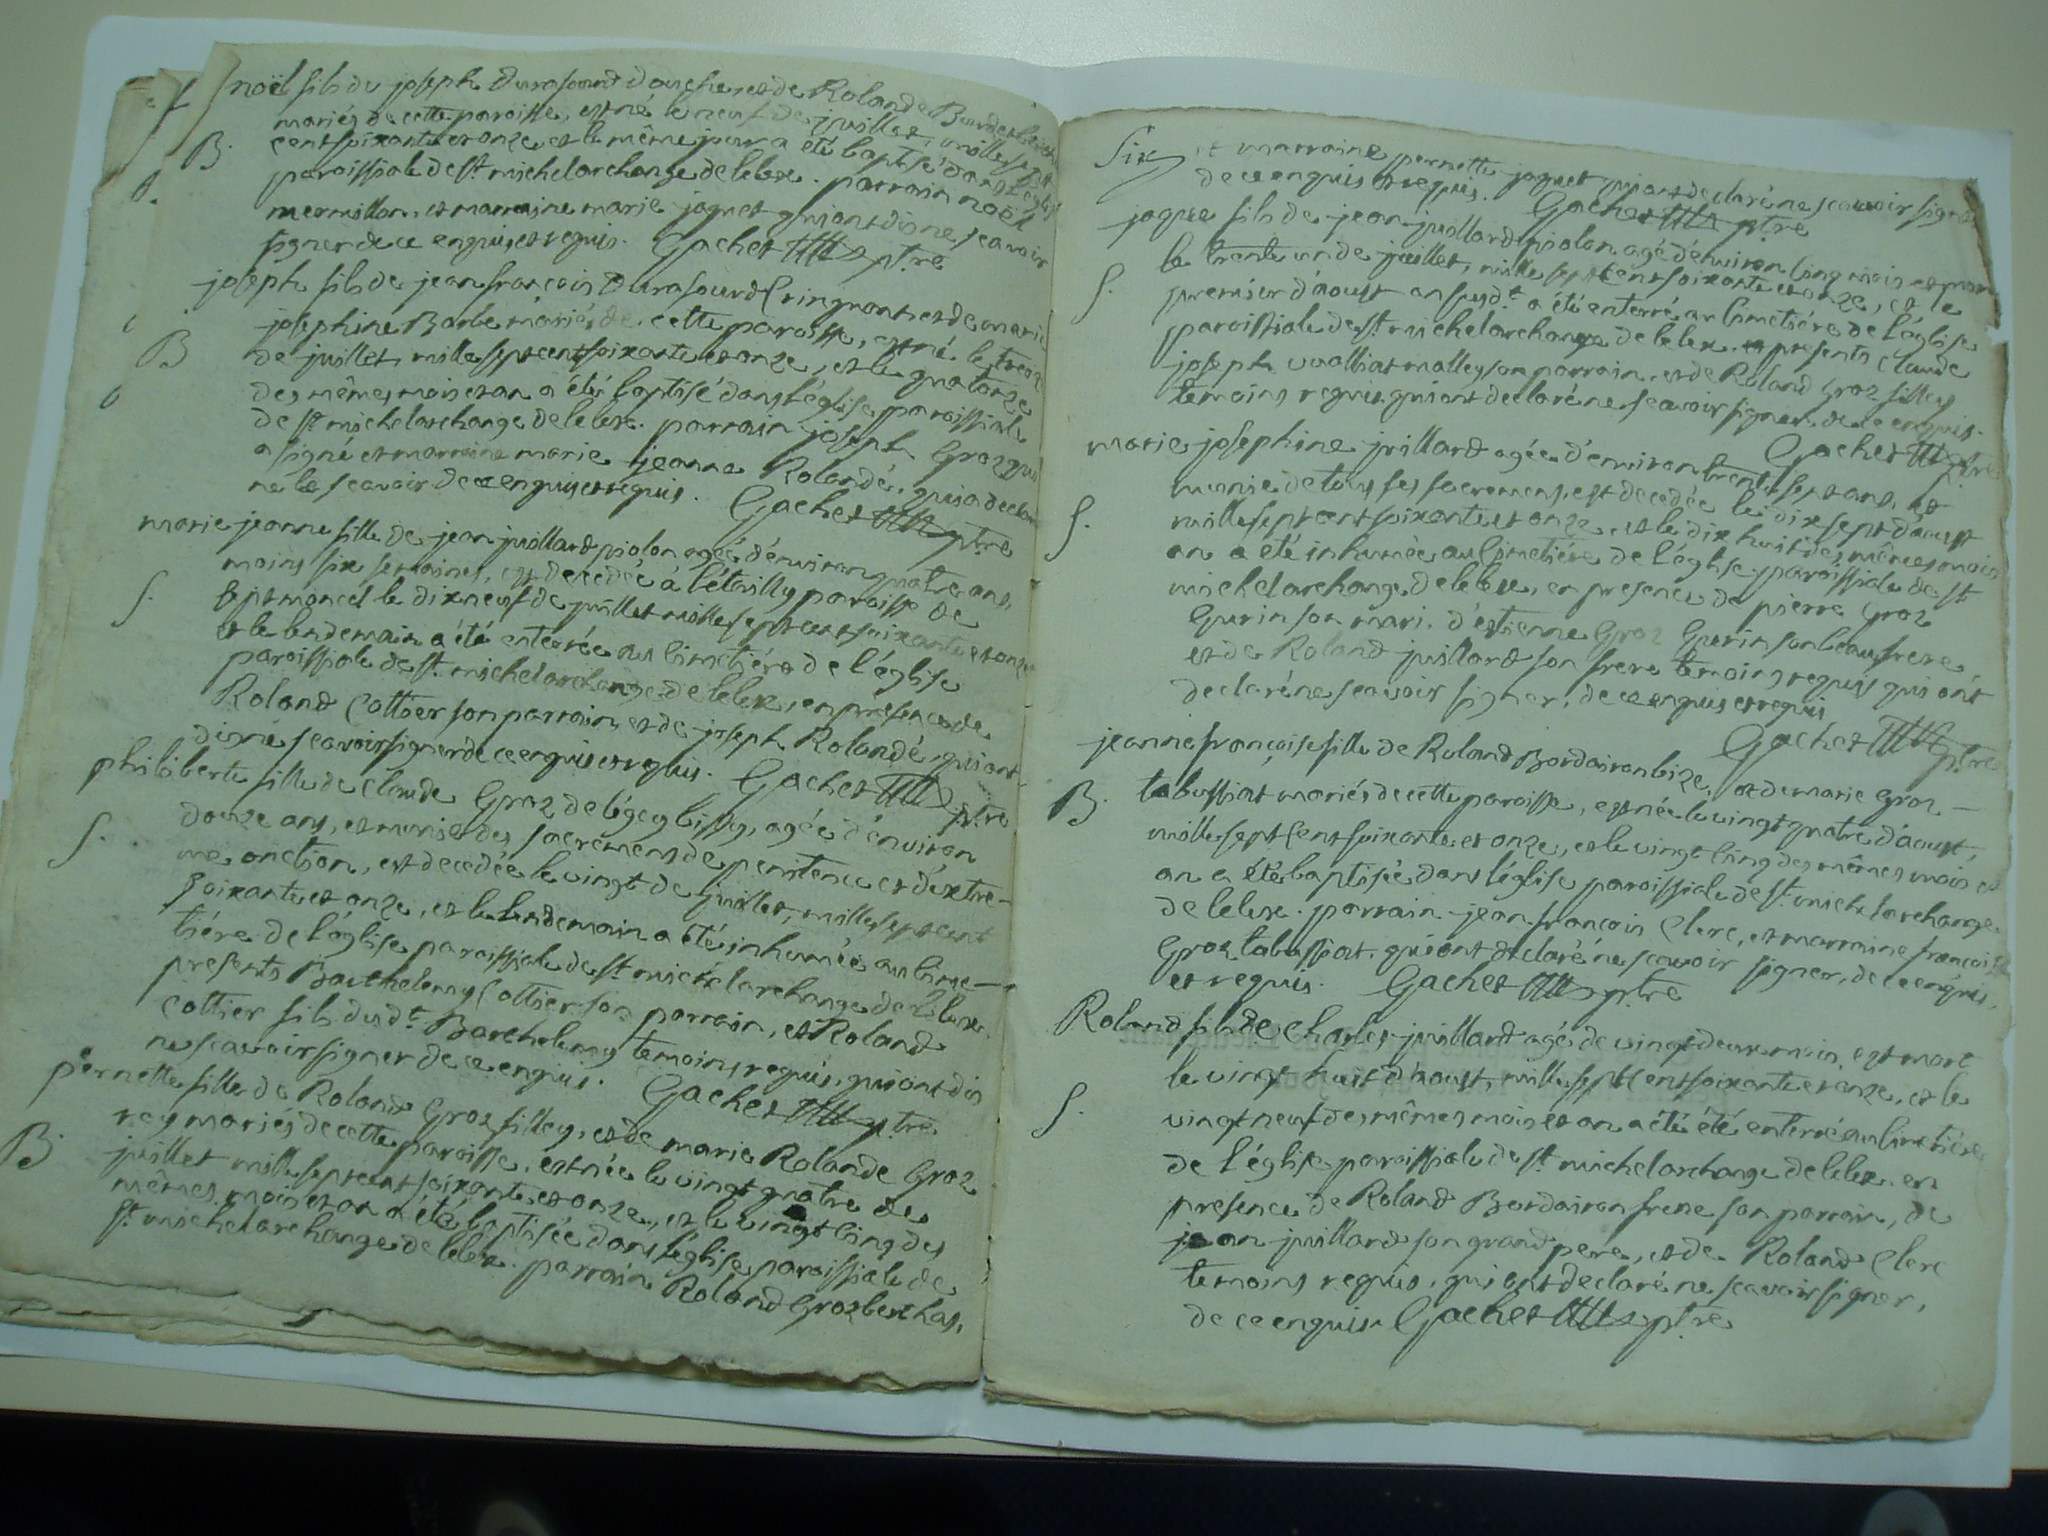 noël fils de joseph Durafourd doucher et de Rolande
mariés de cette paroisse, est né le neuf de juillet, mille sept
B. cent soixante et onze et le même jour a été baptisé dans l'église
paroissiale de st. michel archange de lelex. parrain noël
mermillon, et marraine marie jaquet qui ont dis ne scavoir
signer de ce enquis et requis. Gachet ptre
joseph fils de jean françois Durafourd Cringront et de marie
josephine Barbe mariés de cette paroisse, est né le treze
B de juillet, mille sept cent soixante et onze, et le quatorze
des mêmes mois et an a été baptisé dans l'église paroissiale
de st. michel archange de lelex. parrain joseph Groz qui
a signé et marraine marie jeanne Rolandé, qui a declaré
ne le scavoir de ce enquis et requis. Gachet ptre
marie jeanne fille de jean juillard piolon agée d'environ quatre ans,
moins six semaines, est decedée à l'étoilly paroisse de
S. septmoncel le dix neuf de juillet mille sept cent soixante et onze
et le lendemain a été enterrée au Cimetiére de l'église
paroissiale de st. michel archange de lelex, en presence de
Roland Cottier son parrain, et de joseph Rolandé, qui ont
dis ne scavoir signer de ce enquis et requis. Gachet ptre
philiberte fille de Claude Groz de légey bissy, agée d'environ
douze ans, et munie des sacremens de penitence et d'extre-
S. me onction, est decedée le vingt de juillet, mille sept cent
soixante et onze, et le lendemain a été inhumée au Cime-
tiére de l'église paroissiale de st. michel archange de lelex.
presents Barthelemy Cottier son parrain, et Roland
Cottier fils dud.t Barthelemy temoins requis, qui ont dis
ne scavoir signer de ce enquis. Gachet ptre
pernette fille de Roland Groz filley, et de marie Rolande Groz
rey mariés de cette paroisse, est née le vingt quatre de
B. juillet mille sept cent soixante et onze, et le vingt Cinq des
mêmes mois et an a été baptisée dans l'église paroissiale de
st. michel archange de lelex. parrain Roland Groz berthas,
Six et marraine pernette jaquet qui ont declaré ne scavoir signer
de ce enquis et requis. Gachet ptre
jaque fils de jean juillard piolon agé d'environ Cinq mois est mort
le trente un de juillet, mille sept Cent soixante et onze, et le
S. premier d'aoust an susd.t a été enterré au Cimetiére de l'église
paroissiale de st. michel archange de lelex. presents Claude
joseph vualliat malley son parrain, et de Roland Groz filley
temoins requis qui ont declaré ne scavoir signer de ce enquis.
Gachet ptre
marie josephine juillard agée d'environ trente sept ans, et
munie de tous ses sacremens, est decedée le dix sept d'aoust
S. mille sept cent soixante et onze, et le dix huit des mêmes mois
an a été inhumée au Cimetiére de l'église paroissiale de st.
michel archange de lelex, en presence de pierre Groz
Gurin son mari, d'estienne Groz Gurin son beau frere
et de Roland juillard son frere temoins requis qui ont
declaré ne scavoir signer, de ce enquis et requis
Gachet ptre
jeanne françoise fille de Roland Bordairon bize, et de marie Groz –
B. tabussiat mariés de cette paroisse, est née le vingt quatre d'aoust,
mille sept Cent soixante et onze, et le vingt Cinq des mêmes mois et
an a été baptisée dans l'église paroissiale de st. michel archange
de lelex. parrain jean françois Clerc, et marraine françoise
Groz tabussiat, qui ont declaré ne scavoir signer, de ce enquis,
et requis. Gachet ptre
Roland fils de Charles juillard agé de vingt deux mois, est mort
le vingt huit d'aoust, mille sept Cent soixante et onze, et le
S. vingt neuf des mêmes mois et an a été été enterré au Cimetiére
de l'église paroissiale de st. michel archange de lelex. en
presence de Roland Bordairon frere son parrain, de
jean juillard son grand pere, et de Roland Clerc
temoins requis, qui ont declaré ne scavoir signer,
de ce enquis. Gachet ptre